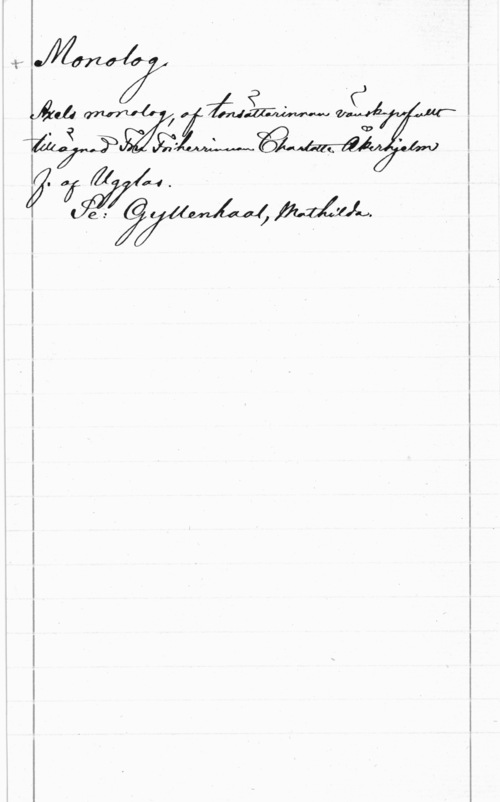 Monolog.
Axels monolog, af tonsätterinnan vänskapsfullt
tillägnad Fru Friherrinnan Charlotte Åkerhjelm
f. af Ugglas.
Se: Gyllenhaal, Mathilda.